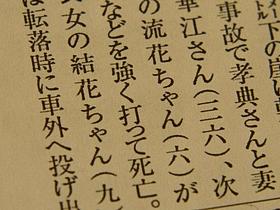 メートル下の崖に
事故で孝典さんと妻
華江さん(三六)、次
の流花ちゃん(六)が
などを強く打って死亡。
女の結花ちゃん(九
は転落時に車外へ投げ出